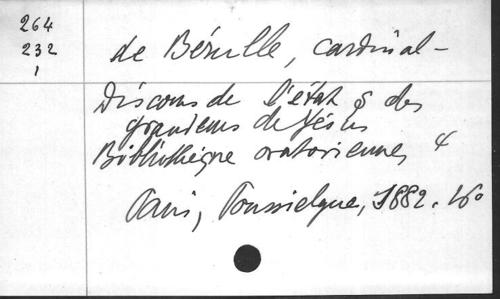 264
232
1
de Bérulle, cardinal -
Discours de l'état & des
grandeurs de Jésus
Bibliothèque oratorienne, 4
Paris, Poussielgue, 1882. 16°